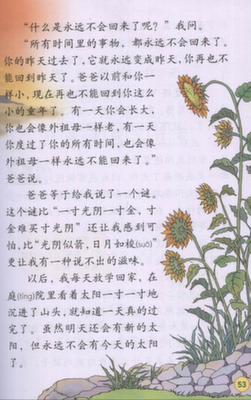 “什么是永远不会回来了呢？”我问。
“所有时间里的事物，都永远不会回来了。
你的昨天过去了，它就永远变成昨天，你再也不
能回到昨天了。爸爸以前和你一
样小，现在再也不能回到你这么
小的童年了。有一天你会长大，
你也会像外祖母一样老，有一天
你度过了你的所有时间，也会像
外祖母一样永远不能回来了。”
爸爸说。
爸爸等于给我说了一个谜，
这个谜比“一寸光阴一寸金，寸
金难买寸光阴”还让我感到可
怕，比“光阴似箭，日月如梭(suō)”
更让我有一种说不出的滋味。
以后，我每天放学回家，在
庭(tíng)院里看着太阳一寸一寸地
沉进了山头，就知道一天真的过
完了。虽然明天还会有新的太
阳，但永远不会有今天的太阳
了。
53